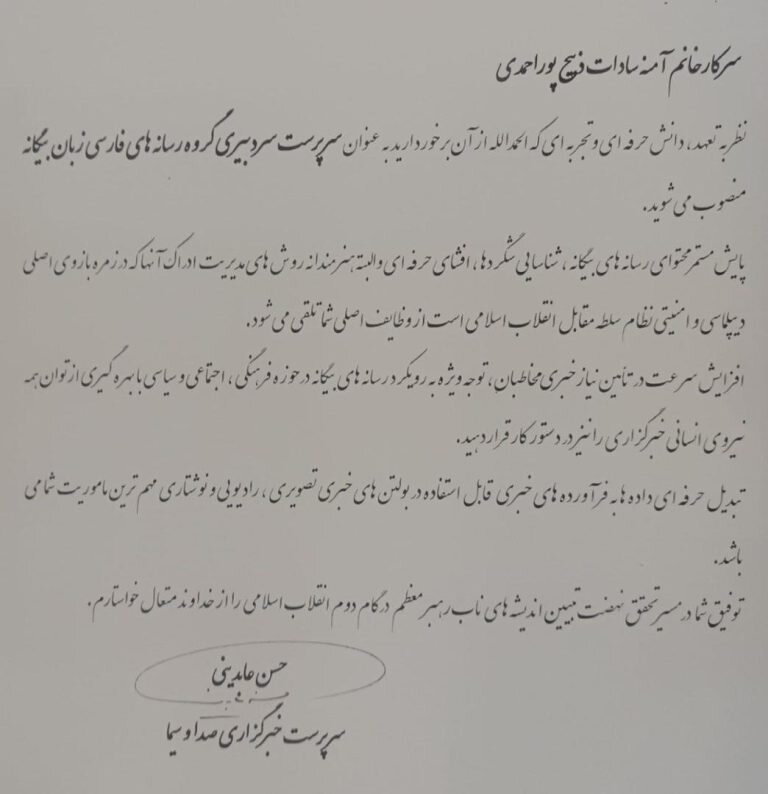 سرکار خانم آمنه سادات ذبیح پور احمدی
نظر به تعهد، دانش حرفه ای و تجربه ای که الحمدالله از آن برخوردارید به عنوان سرپرست سردبیری گروه رسانه های فارسی زبان بیگانه
منصوب می شوید.
پایش مستمر محتوای رسانه های بیگانه، شناسایی شگردها، افشای حرفه ای و البته هنرمندانه روش های مدیریت ادراک آنها که در زمره بازوی اصلی
دیپلماسی و امنیتی نظام سلطه مقابل انقلاب اسلامی است از وظایف اصلی شما تلقی می شود.
افزایش سرعت در تأمین نیاز خبری مخاطبان، توجه ویژه به رویکرد رسانه های بیگانه در حوزه فرهنگی، اجتماعی و سیاسی با بهره گیری از توان همه
نیروی انسانی خبرگزاری را نیز در دستور کار قرار دهید.
تبدیل حرفه ای داده ها به فرآورده های خبری قابل استفاده در بولتن های خبری تصویری، رادیویی و نوشتاری مهم ترین ماموریت شما می
باشد.
توفیق شما در مسیر تحقق نهضت تبیین اندیشه های ناب رهبر معظم در گام دوم انقلاب اسلامی را از خداوند متعال خواستارم.
حسن عابدینی
سرپرست خبرگزاری صدا و سیما